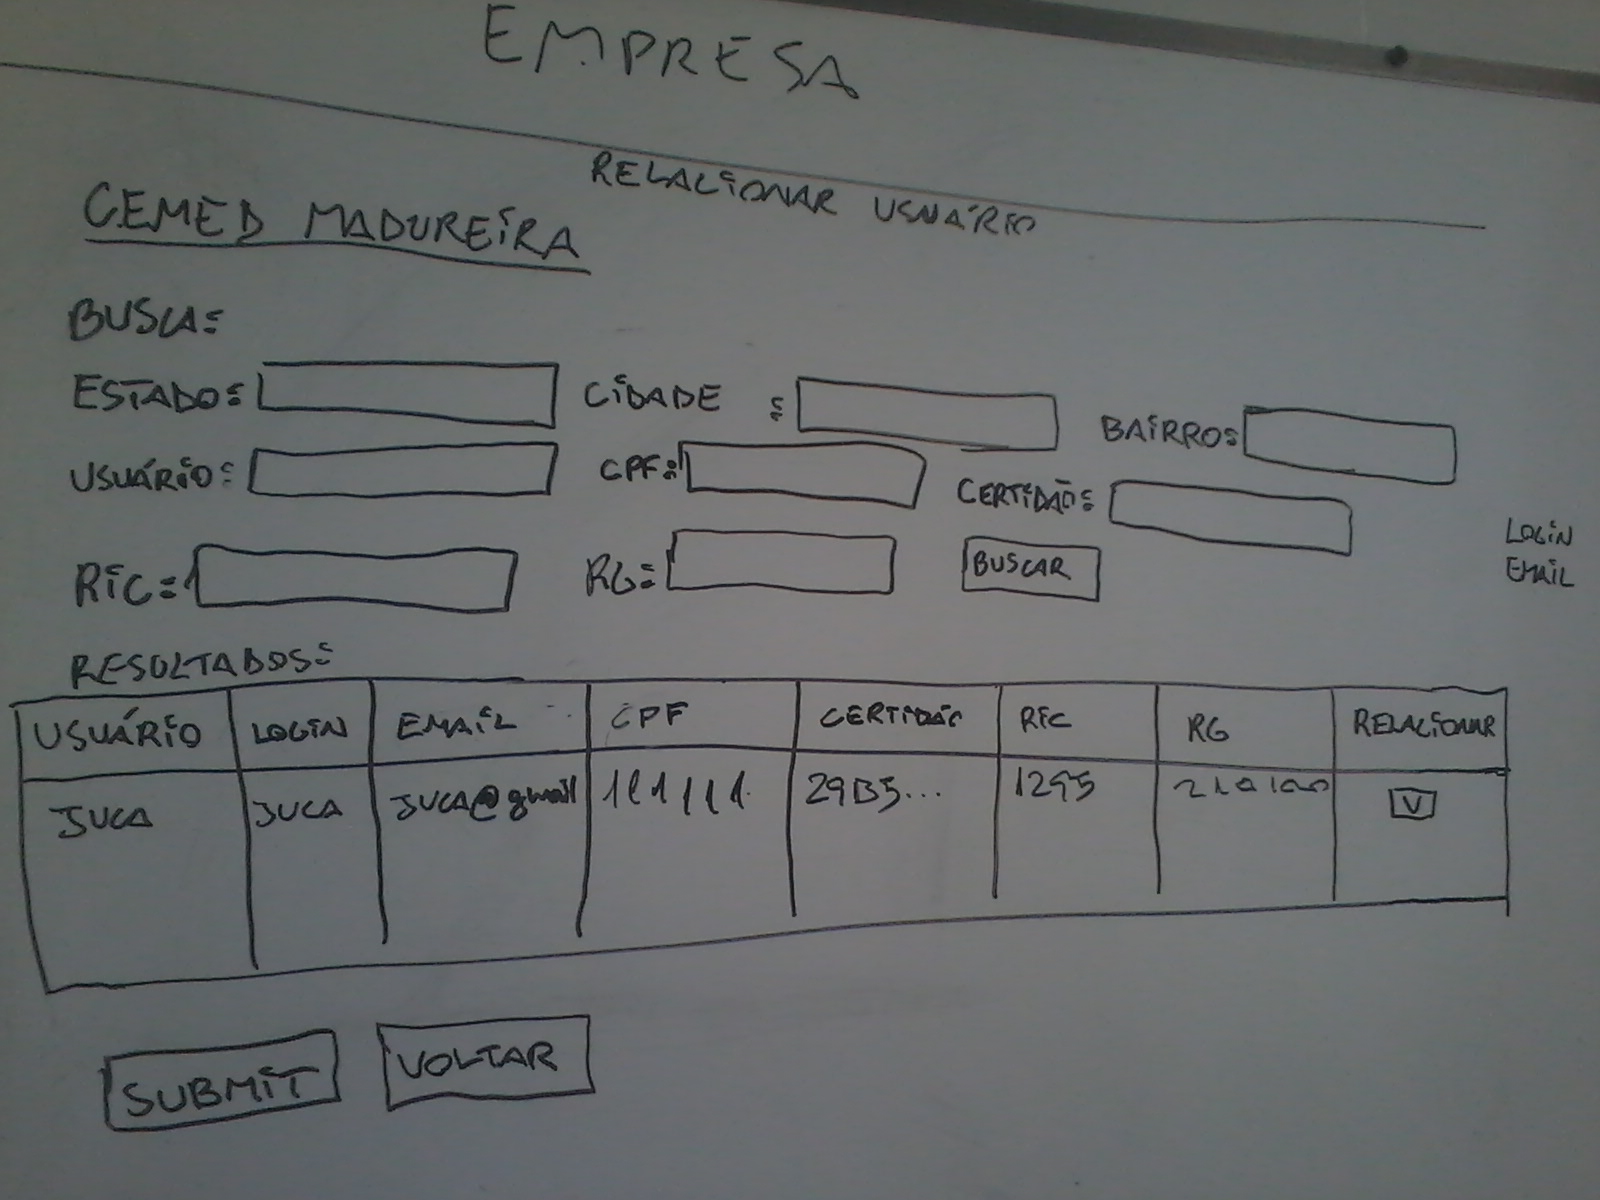 EMPRESA
RELACIONAR USUÁRIO
CEMED MADUREIRA
BUSCA:
ESTADO: CIDADE : BAIRRO:
USUÁRIO: CPF: CERTIDÃO:
RIC: RG: BUSCAR
LOGIN
EMAIL
RESULTADOS:
USUÁRIO LOGIN EMAIL CPF CERTIDÃO RIC RG RELACIONAR
JUCA JUCA JUCA@gmail 111111 29B5... 1295 V
SUBMIT VOLTAR